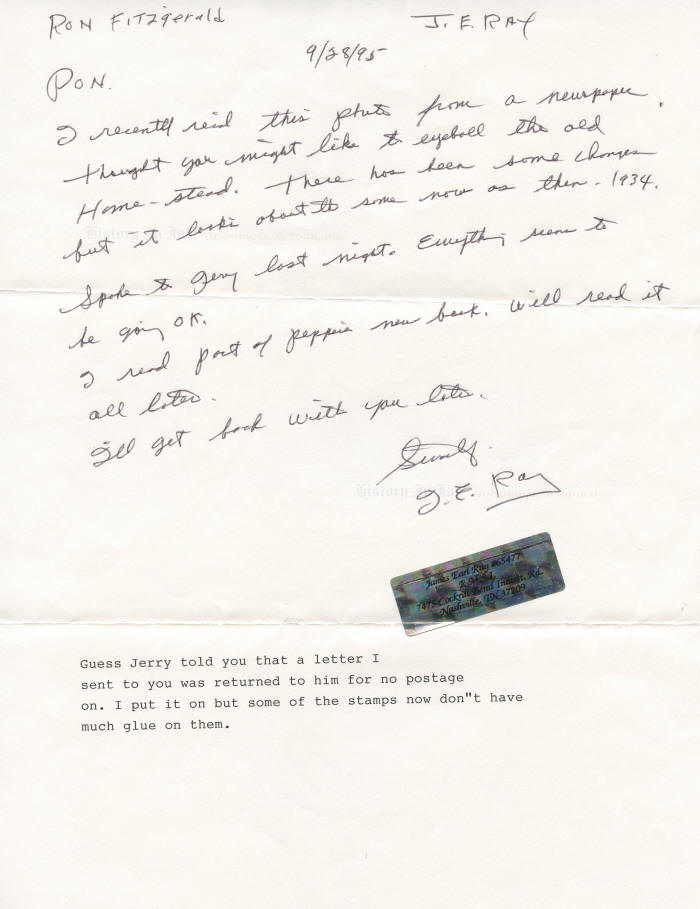 RON FITZgerald J. E. RAY
9/28/95
RON.
I recently reid this photo from a newspaper.
thought you might like to eyeball the old
Home-stead. There has been some changes
but it looks about the same now as then - 1934.
History In Ink HISTORICAL AUTOGRAPHS
Spoke to Jerry last night. Everything seems to
be going OK.
I read part of peppers new book. will read it
all later.
I'll get back with you later.
Sincerely.
J. E. Ray
History In Ink HISTORICAL AUTOGRAPHS
James Earl Ray #65477
R.M.S.I.
7475 Cockrill Bend Industr. Rd.
Nashville, TN 37209
Guess Jerry told you that a letter I
sent to you was returned to him for no postage
on. I put it on but some of the stamps now don"t have
much glue on them.